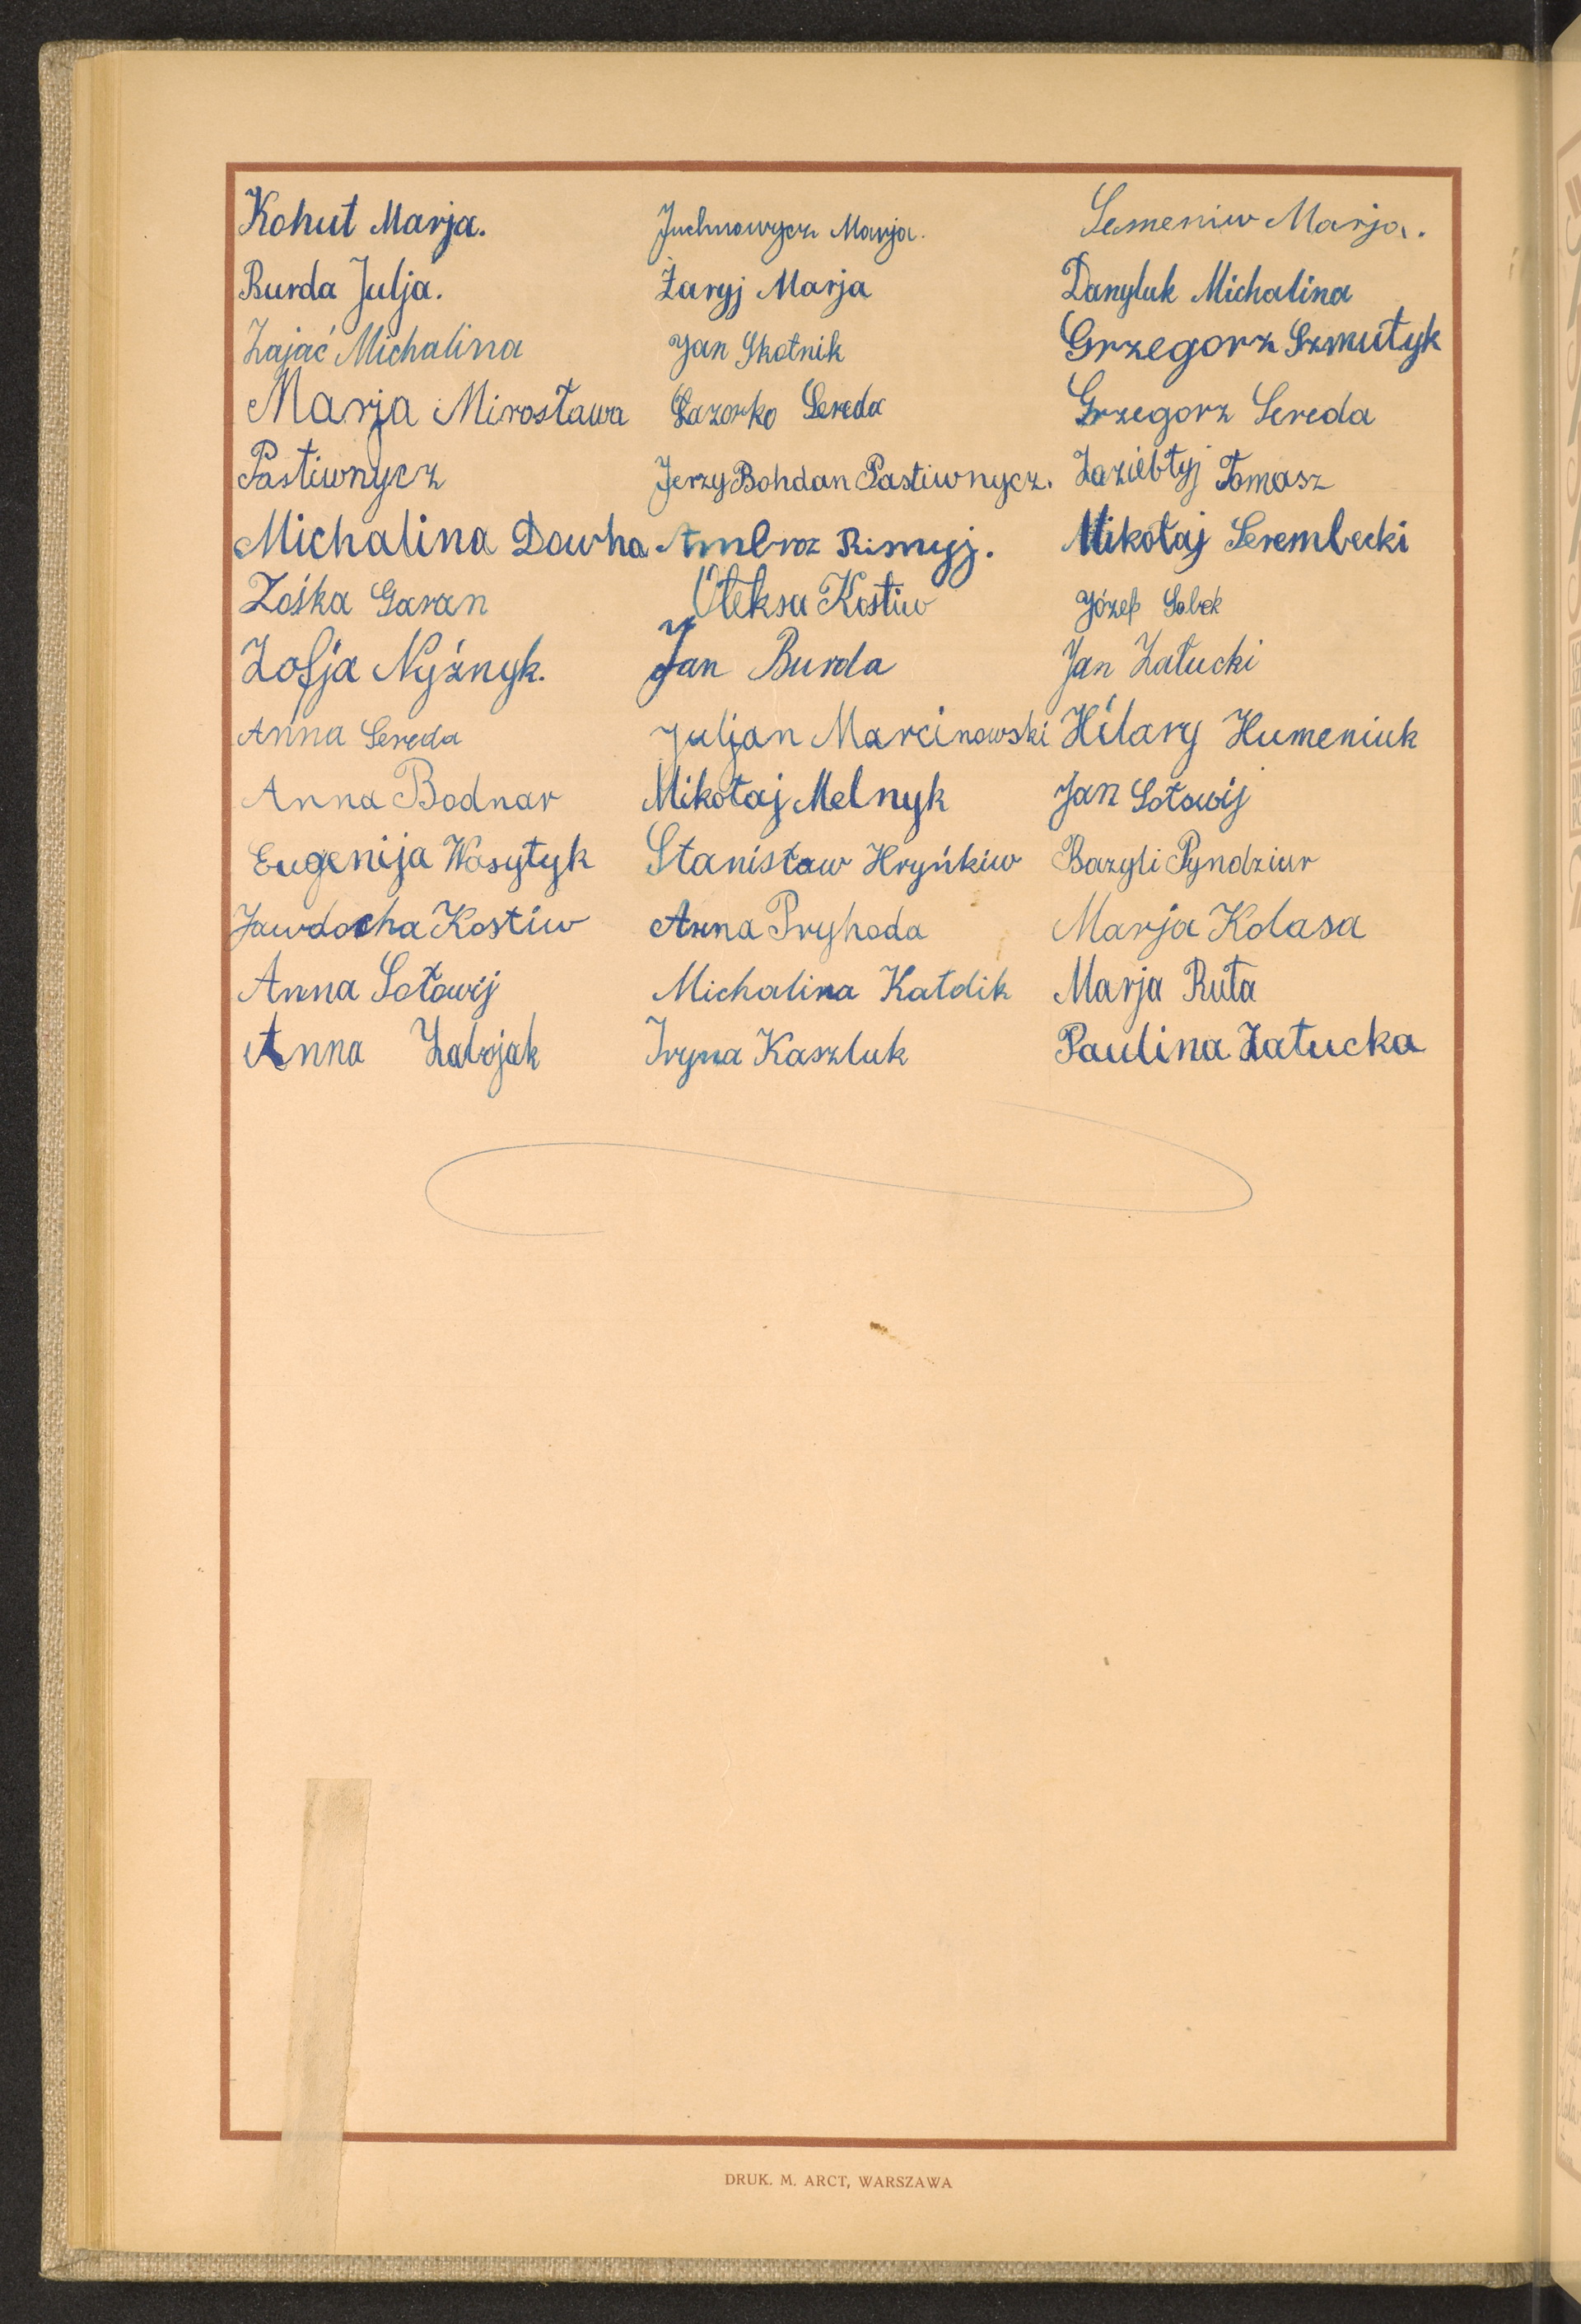 Kohut Marja.
Burda Julja.
Zając Michalina
Marja Mirosława
Pastiwnycz
Michalina Dowha
Zośka Garan
Zofja Nyżnyk.
Anna Sereda
Anna Bodnar
Eugenija Wasyłyk
Jawdocha Kostiw
Anna Sołowij
Anna Zabojak
Juchnowycz Marja.
Żaryj Marja
Jan Skotnik
Łazorko Sereda
Jerzy Bohdan Pastiwnycz.
Ambroz Rismyj.
Ołeksa Kostiw
Jan Burda
Juljan Marcinowski
Mikołaj Melnyk
Stanisław Hryńkiw
Anna Pryhoda
Michalina Kałdik
Iryna Kaszluk
Semeniw Marja.
Danyluk Michalina
Grzegorz Szmułyk
Grzegorz Sereda
Zaziębłyj Tomasz
Mikołaj Serembecki
Józef Sobek
Jan Załucki
Hilary Humeniuk
Jan Sołowij
Bazyli Pyndziur
Marja Kolasa
Marja Ruta
Paulina Załucka
DRUK. M. ARCT, WARSZAWA